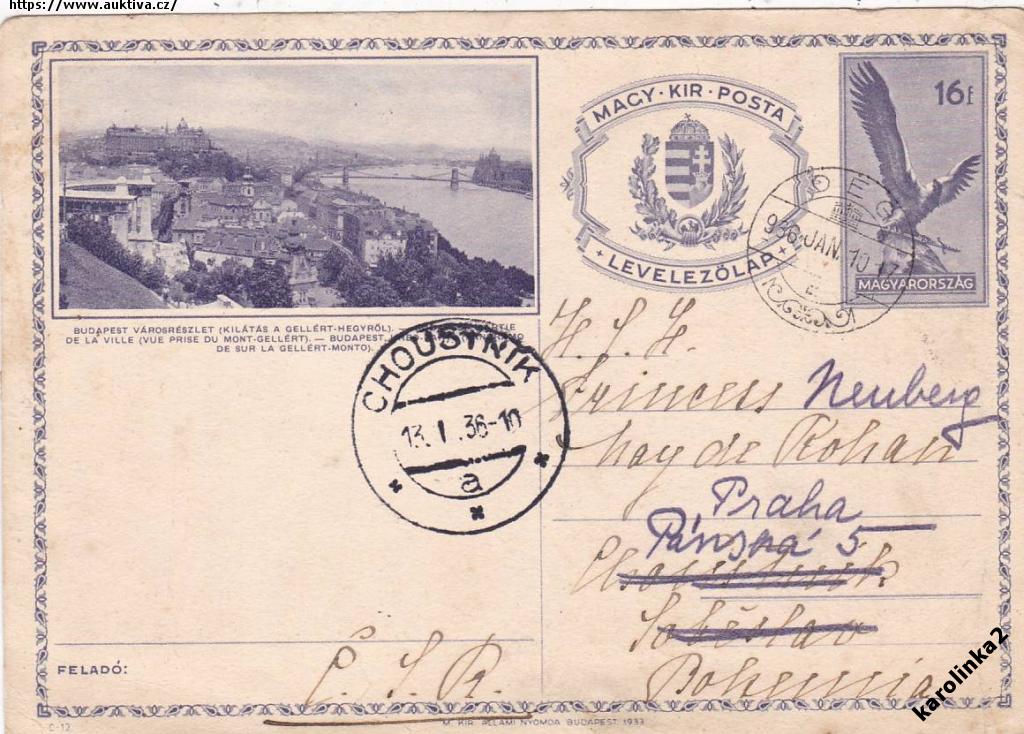 https://www.auktiva.cz/
MAGY · KIR · POSTA
LEVELEZŐLAP
16f
MAGYARORSZÁG
936 JAN. 10 17
BUDAPEST VÁROSRÉSZLET (KILÁTÁS A GELLÉRT-HEGYRŐL). —
DE LA VILLE (VUE PRISE DU MONT-GELLÉRT). — BUDAPEST,
DE SUR LA GELLÉRT-MONTO).
CHOUSTNÍK
13. I. 36-10
a
H. S. H.
Princess Neuberg
May de Rohan
Praha
Pánská 5
Choustnik
Soběslav
Bohemia
FELADÓ:
Č. S. R.
C-12
M. KIR. ÁLLAMI NYOMDA BUDAPEST. 1933
karolinka2